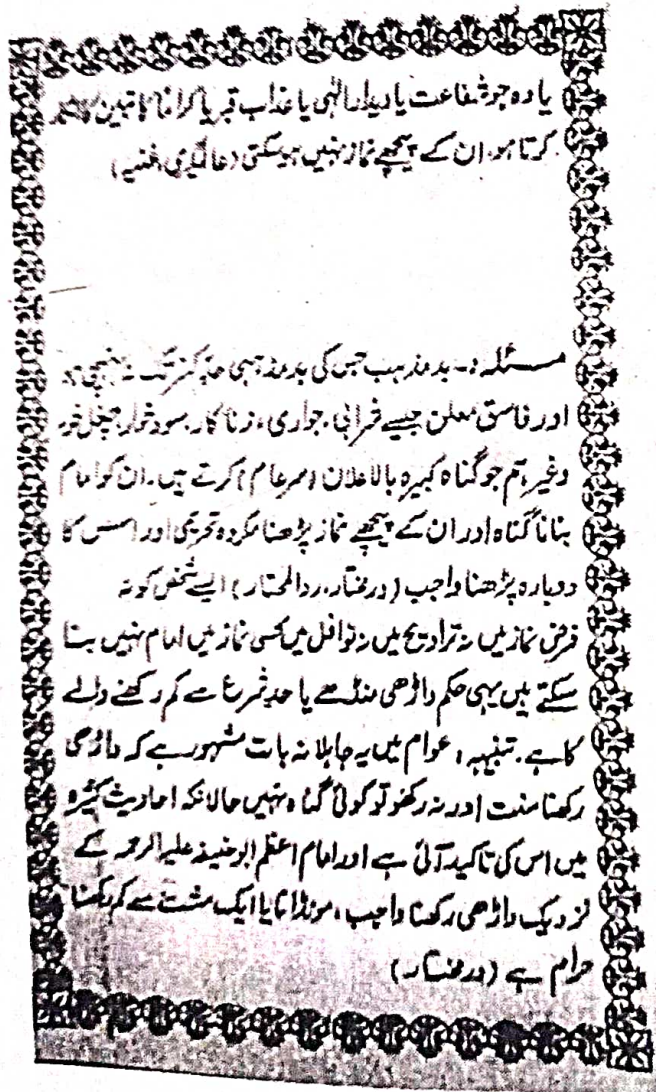 یا وہ جو شفاعت یا دیدار الٰہی یا عذاب قبر یا کراماً کاتبین کا انکار
کرتا ہو، ان کے پیچھے نماز نہیں ہوسکتی (عالمگیری، غنیہ)
مسئلہ :۔ بدمذہب جس کی بدمذہبی حد کفر تک نہ پہنچی ہو
اور فاسق معلن جیسے شرابی، جواری، زناکار، سود خوار، چغل خور
وغیرہم جو گناہ کبیرہ بالاعلان (سرعام) کرتے ہیں۔ ان کو امام
بنانا گناہ اور ان کے پیچھے نماز پڑھنا مکروہ تحریمی اور اس کا
دوبارہ پڑھنا واجب (درمختار، ردالمحتار) ایسے شخص کو نہ
فرض نماز میں نہ تراویح میں نہ نوافل میں کسی نماز میں امام نہیں بنا
سکتے ہیں یہی حکم داڑھی منڈے یا حد شرع سے کم رکھنے والے
کا ہے۔ تنبیہہ، عوام میں یہ جاہلانہ بات مشہور ہے کہ داڑھی
رکھنا سنت اور نہ رکھو تو کوئی گناہ نہیں حالانکہ احادیث کثیرہ
میں اس کی تاکید آئی ہے اور امام اعظم ابو حنیفہ علیہ الرحمہ کے
نزدیک داڑھی رکھنا واجب، مونڈانا یا ایک مشت سے کم رکھنا
حرام ہے (درمختار)